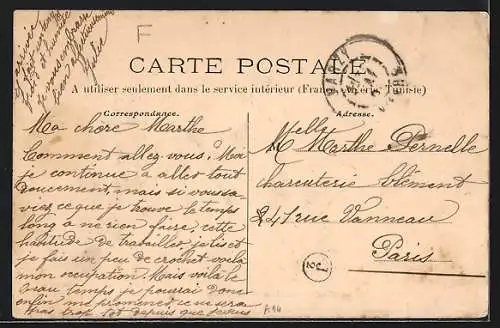 F
CARTE POSTALE
A utiliser seulement dans le service intérieur (France, Algérie, Tunisie)
Correspondance.
Adresse.
Ma chère Marthe
Comment allez-vous? Moi
je continue à aller tout
doucement, mais si vous sa-
viez ce que je trouve le temps
long à ne rien faire, cette
habitude de travailler, je lis et
je fais un peu de crochet voilà
mon occupation. Mais voilà le
beau temps je pourrai donc
enfin me promener ce ne sera
pas trop tôt depuis que je suis
arrivée
je vous embrasse
bien affectueusement
Melle Marthe Pernelle
charcuterie Clément
241 rue Vanneau
Paris
J
2
A14